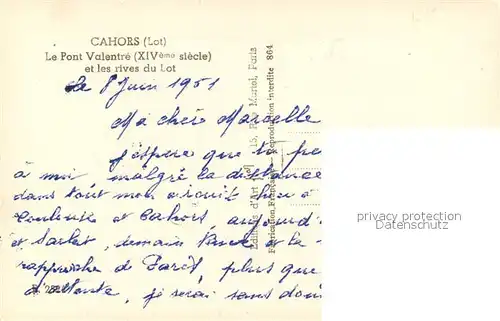 CAHORS (Lot)
Le Pont Valentré (XIVème siècle)
et les rives du Lot
Le 8 Juin 1951
Ma chère Marcelle
J'espère que tu pe
à moi malgré la distance
dans tout mon circuit hier à
Toulouse et Cahors, aujourd'
et Sarlat, demain et la
rapproche de Paris, plus que
d'attente, je serai sans dou
Editions d'Art 15, Martel, Paris
Fabrication Française Reproduction interdite 864
privacy protection
Datenschutz